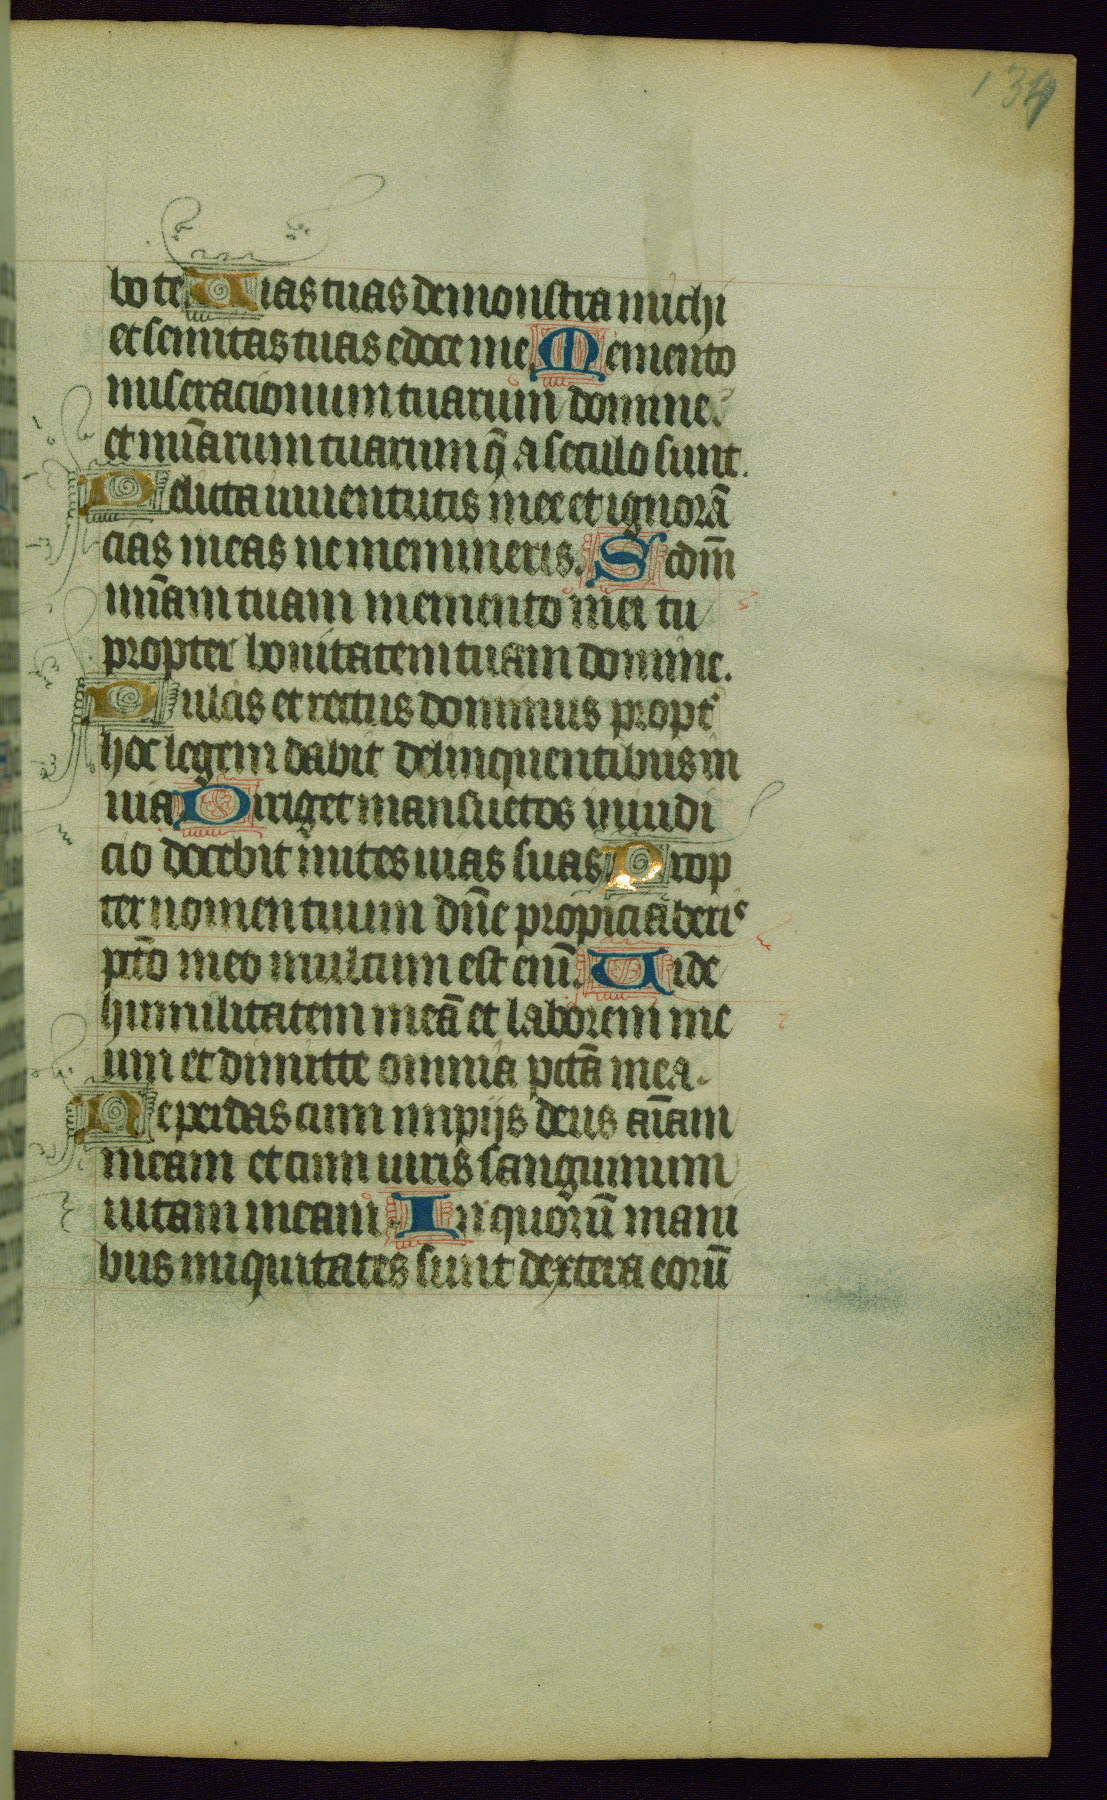 134
bo te Uias tuas demonstra michi
et semitas tuas edoce me Memento
miseracionum tuarum domine
et mīarum tuarum q̄ a seculo sunt.
Delicta iuuentutis mee et ignorā
cias meas ne memineris. Scdm̄
mīam tuam memento mei tu
propter bonitatem tuam domine.
Dulcis et rectus dominus propt̄
hoc legem dabit delinquentibus in
uia Diriget mansuetos in iudi
cio docebit mites uias suas Prop
ter nomen tuum dn̄e propiciaberis
pctō meo multum est eni̅. Uide
humilitatem meā et laborem me
um et dimitte omnia pctā mea.
Ne perdas cum impijs deus aīam
meam et cum uiris sanguinum
uitam meam In quorū mani
bus iniquitates sunt dextera eorū